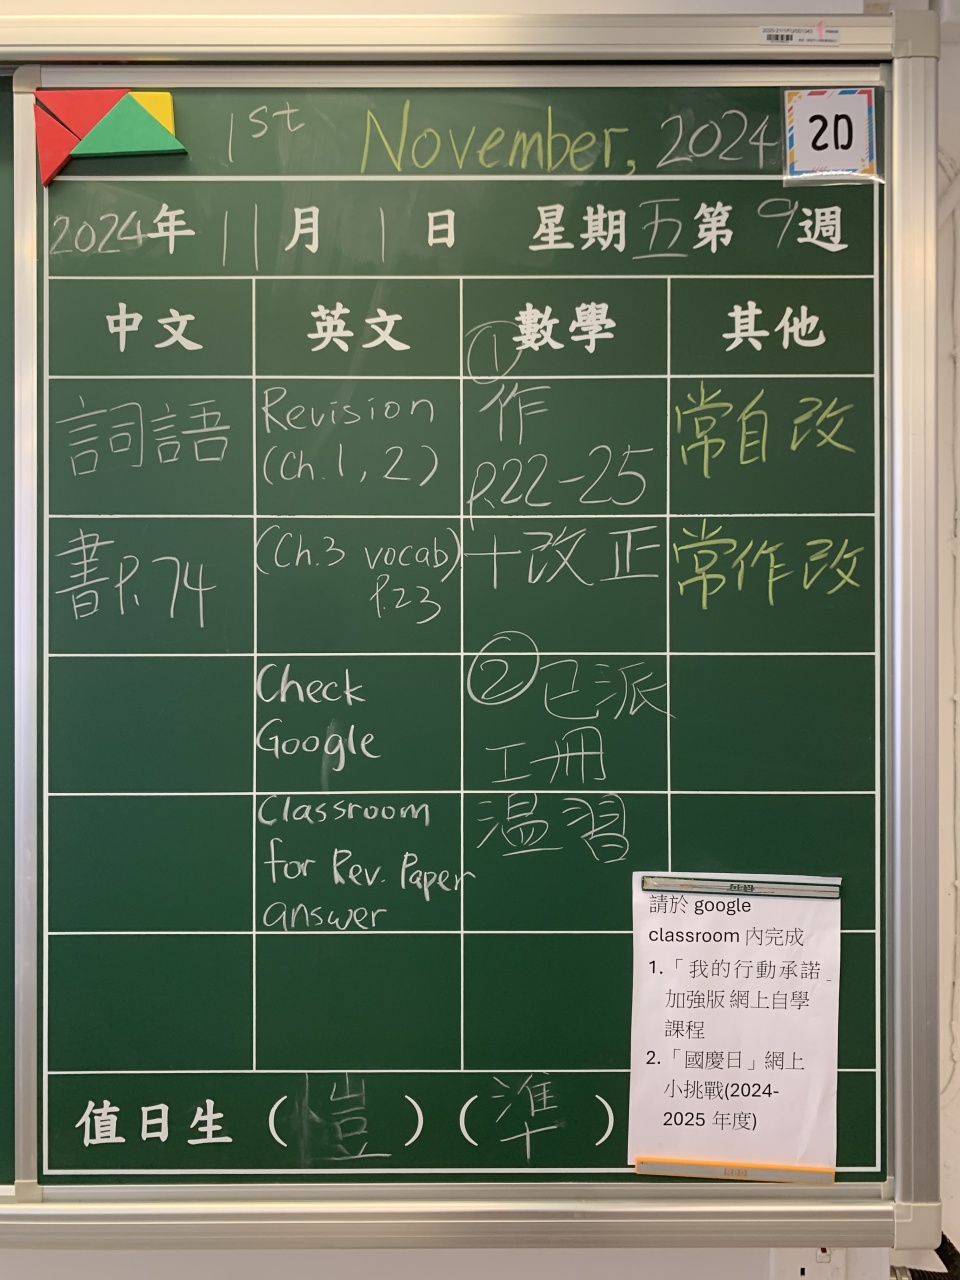 1st November, 2024
2D
2024年 11月 1日 星期五 第9週
中文 英文 數學 其他
詞語
書P.74
Revision
(Ch.1, 2)
(Ch.3 vocab)
P.23
Check
Google
Classroom
for Rev. Paper
answer
①
作
P.22-25
+改正
②已派
工冊
温習
常自改
常作改
請於 google
classroom 內完成
1.「我的行動承諾
加強版 網上自學
課程
2.「國慶日」網上
小挑戰(2024-
2025 年度)
值日生 ( 愷 ) ( 準 )